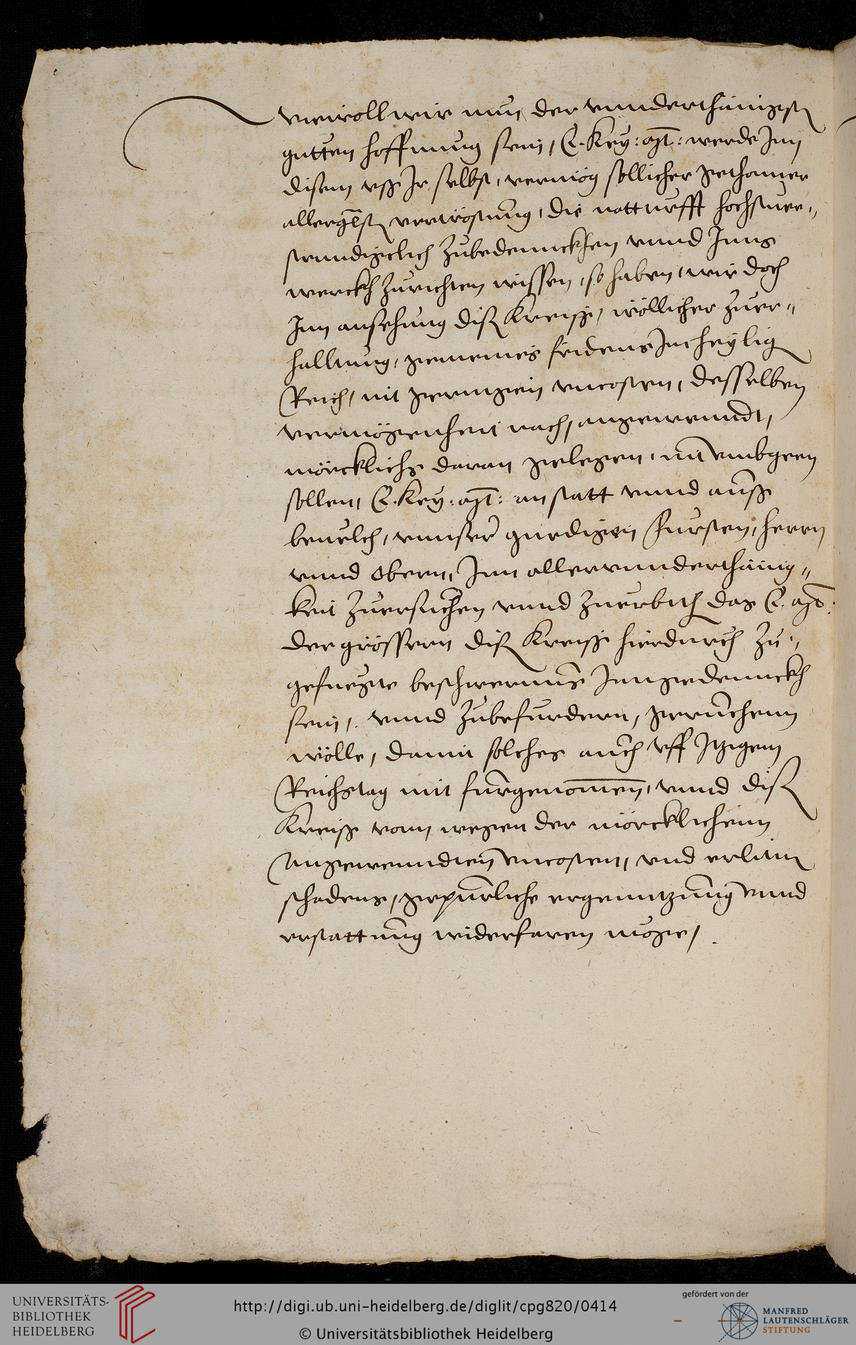 wiewoll wir nun der vnnderthänigst
gutten hoffnung sein, E. Key: Mt: werde Inn
disem vß Ir selbst, vermög sollicher gethoner
allergdst vertröstung, die notturfft hochstuer=
stenndigclich zubedennckhen vnnd Inns
werckh zurichten wissen, so haben, wir doch
Inn ansehung diß Kreiß, wöllicher zuer=
halltung, gemeines fridens Im heylig
Reich, nit geringen vncosten, desselben
vermögenheit nach, angewenndt,
mörcklichs daran gelegen, nit vmbgeen
sollen, E. Key: Mt: anstatt vnnd auß
beuelch, vnnser gnedigen Fursten, herrn
vnnd Obern, Inn allervnnderthänig=
keit zuersuchen vnnd zuerbitt das E. Mt:
der grössern diß Kreiß hierdurch zu=
gefuegte beschwernus Inngedennckh
sein, vnnd zubefurdern, geruchenn
wölle, damit solches auch vff Itzigem
Reichstag mit furgenommen, vnnd diß
Kreiß vonn wegen der mörcklichenn
Angewenndten vncosten, vnd erlitm
schadens, gepurliche ergenntzung vnnd
erstattung widerfaren möge,
UNIVERSITÄTS-
BIBLIOTHEK
HEIDELBERG
http://digi.ub.uni-heidelberg.de/diglit/cpg820/0414
© Universitätsbibliothek Heidelberg
gefördert von der
MANFRED
LAUTENSCHLÄGER
STIFTUNG